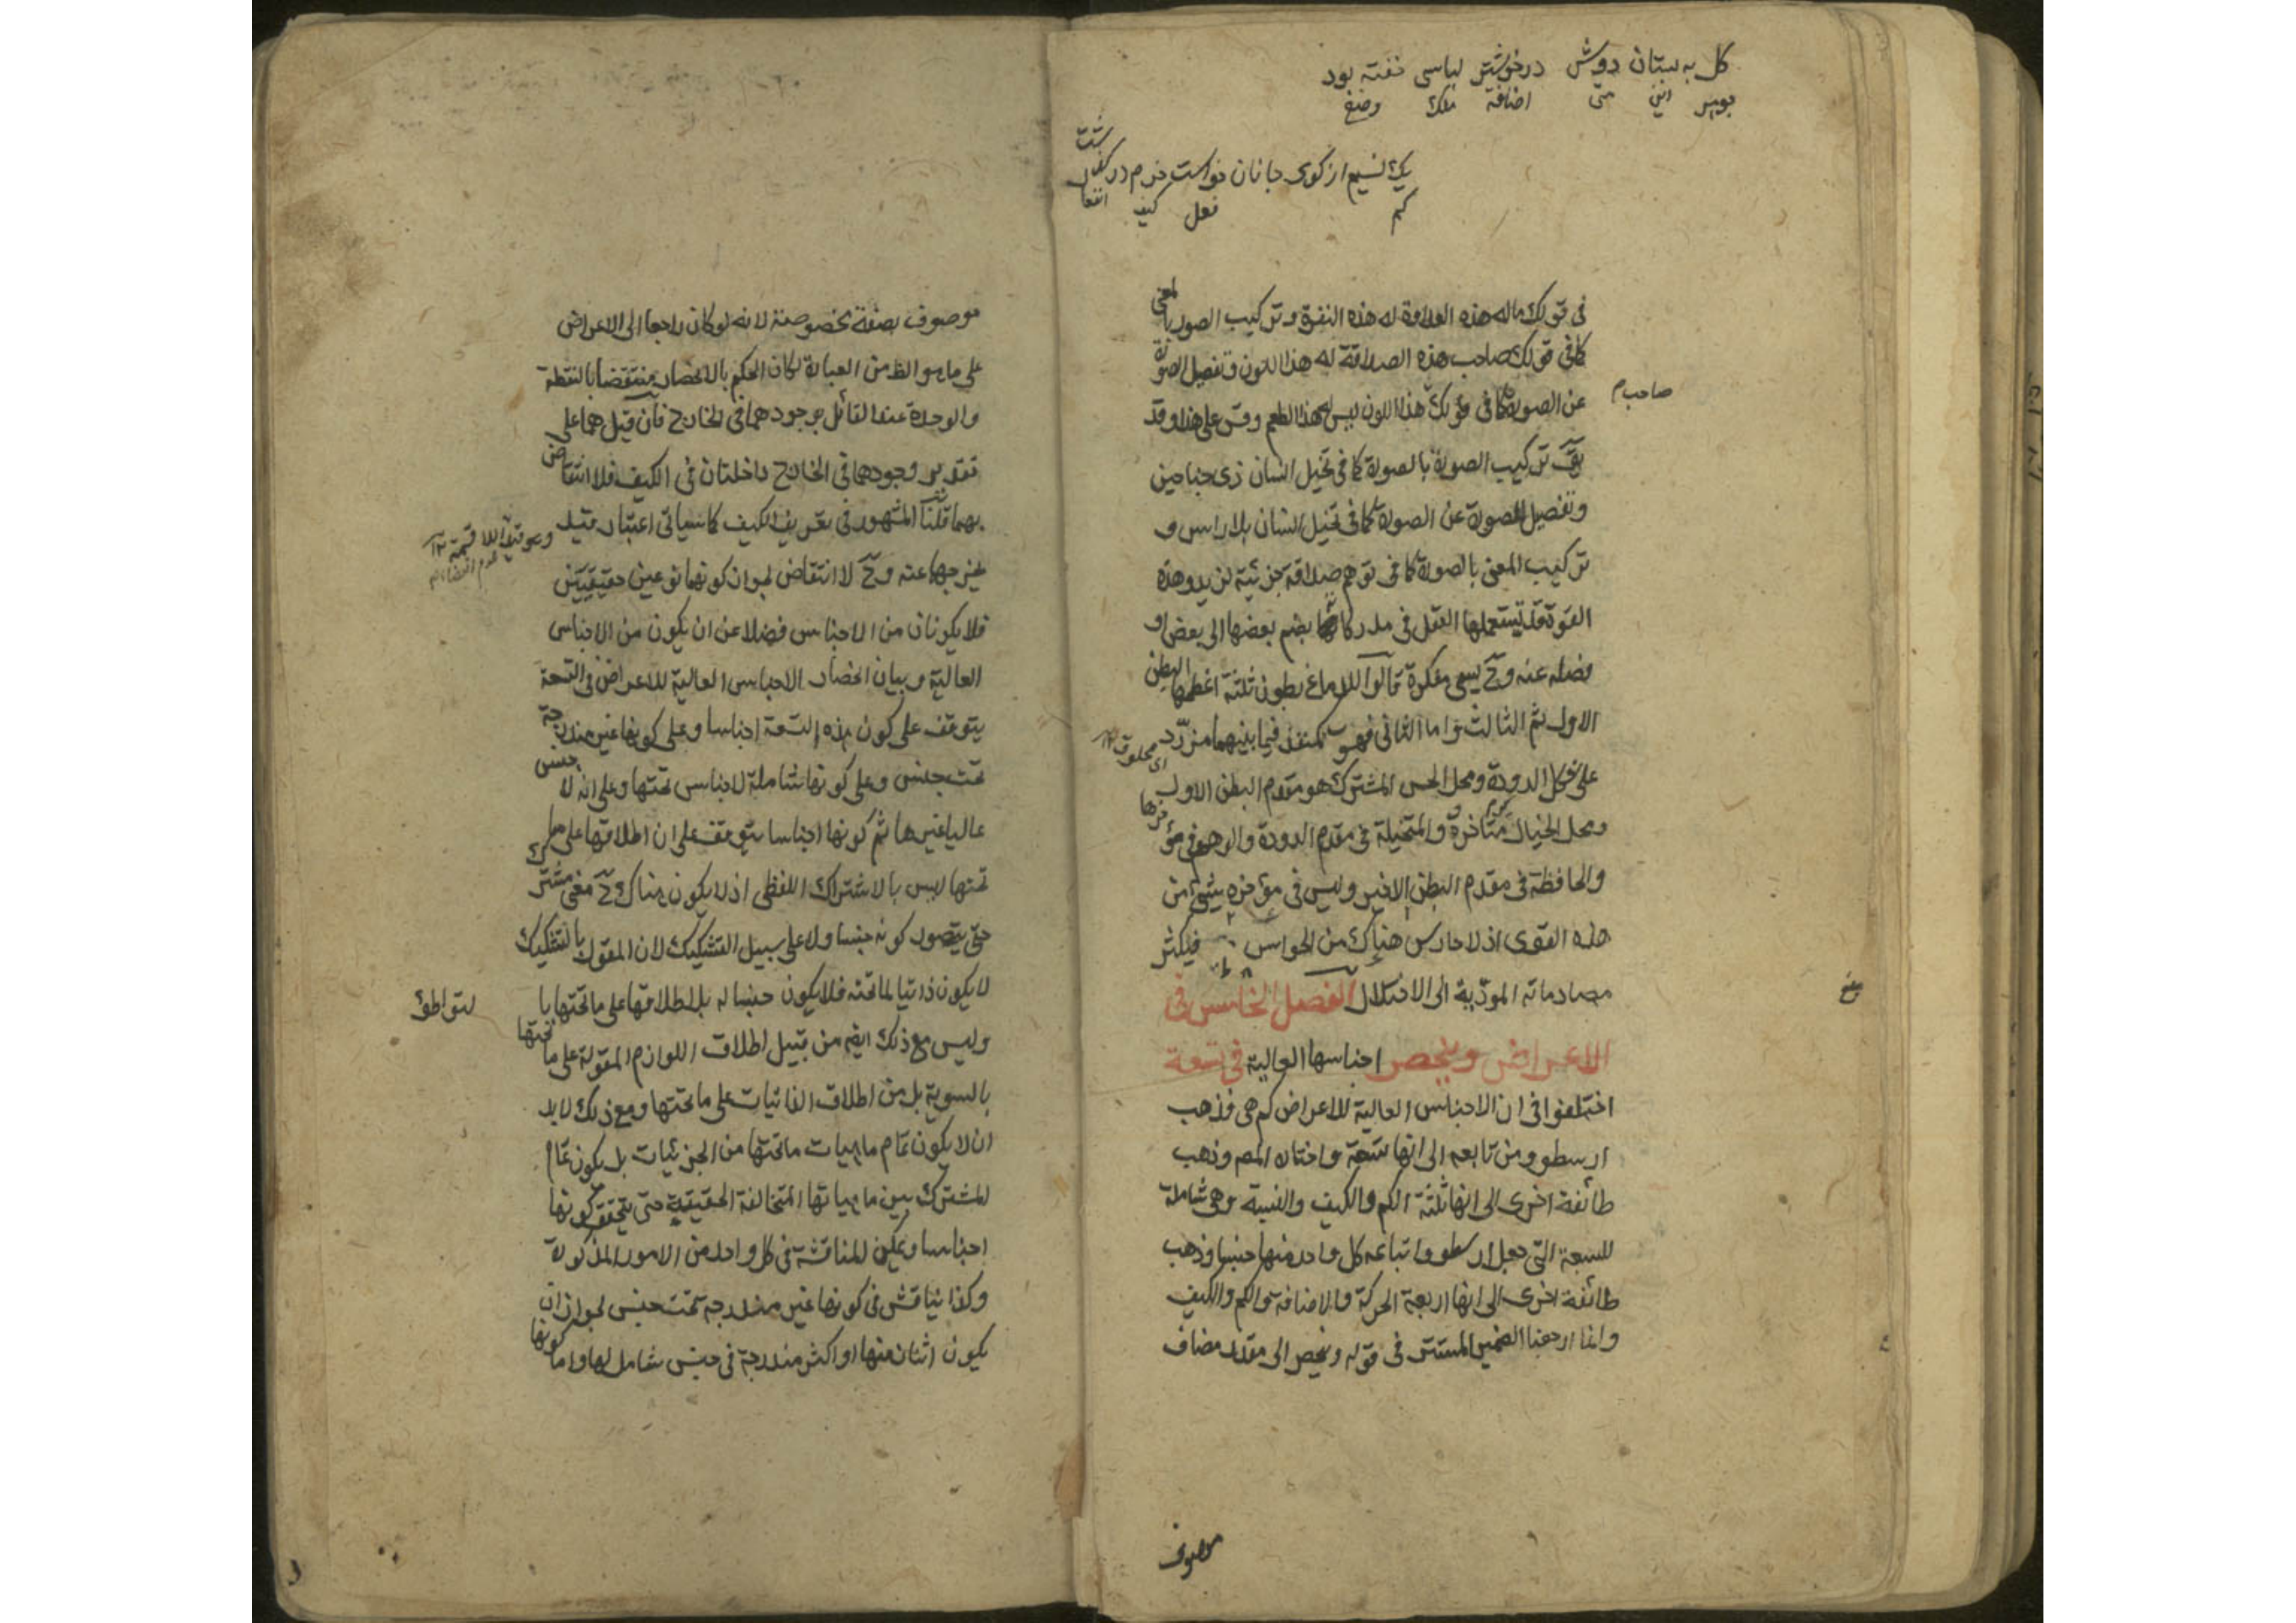 كل به بستان دوش درخوشتر لباسی خفته بود
جوهر این متی اضافة ملك وضع
یك نسیم از کوی جانان خواست خرم در گفتار گشت
كم فعل كيف انفعا
فى قولك ماله هذه العداوة له هذه النفرة وتركيب الصورة بالمعنى
كما فى قولك صاحب هذه الصداقة له هذا اللون وتفصيل الصورة
صاحب م
عن الصورة كما فى قولك هذا اللون ليس له هذا الطعم وقس على هذا وقد
يق تركيب الصورة بالصورة كما فى تخيل انسان ذى جناحين
وتفصيل الصورة عن الصورة كما فى تخيل انسان بلا راس و
تركيب المعنى بالصورة كما فى توهم صداقة جزئية لزيد وهذه
القوة قد تستعملها العقل فى مدركاتها بضم بعضها الى بعض او
فصله عنه وح يسمى مفكرة قالوا للدماغ بطون ثلثة اعظمها البطن
الاول ثم الثالث واما الثانى فهو كمنفذ فيما بينهما مزرّد
اى محلوق ١٢
على شكل الدودة ومحل الحس المشترك هو مقدم البطن الاول
ومحل الخيال متأخرة والمتخيلة فى مقدم الدودة والوهم فى مؤخرها
والحافظة فى مقدم البطن الاخير وليس فى مؤخره شئ من
هذه القوى اذ لا حارس هناك من الحواس فيكثر
مصادماته الموذية الى الاختلال الفصل الخامس فى
الاعراض وينحصر اجناسها العالية فى تسعة
اختلفوا فى ان الاجناس العالية للاعراض كم هى فذهب
ارسطو ومن تابعه الى انها تسعة واختاره المصه وذهب
طائفة اخرى الى انها ثلثة الكم والكيف والنسبة وهى شاملة
للسبعة التى جعل ارسطو واتباعه كل واحد منها جنسا وذهب
طائفة اخرى الى انها اربعة الحركة والاضافة والكم والكيف
وانما ارجعنا الضمير المستتر فى قوله وينحصر الى مقدر مضاف
موصوف
موصوف بصفة مخصوصة لانه لو كان راجعا الى الاعراض
على ما هو الظ من العبارة لكان الحكم بالانحصار منتقضا بالنقطة
والوحدة عند القائل بوجودهما فى الخارج فان قيل هما على
تقدير وجودهما فى الخارج داخلتان فى الكيف فلا انتقاض
بهما قلنا المشهور فى تعريف الكيف كما سياتى اعتبار قيد
وهو قيد اللا قسمة ١٢
يخرجهما عنه وح لا انتقاض لجواز كونهما نوعين حقيقيين
فلا يكونان من الاجناس فضلا عن ان يكون من الاجناس
العالية وبيان انحصار الاجناس العالية للاعراض فى التسعة
يتوقف على كون هذه التسعة اجناسا وعلى كونها غير مندرجة
تحت جنس وعلى كونها شاملة لاجناس تحتها وعلى انه لا جنس
عاليا غيرها ثم كونها اجناسا يتوقف على ان اطلاقها على ما
تحتها ليس بالاشتراك اللفظى اذ لا يكون هناك ح معنى مشترك
حتى يتصور كونه جنسا ولا على سبيل التشكيك لان المقول بالتشكيك
لا يكون ذاتيا لما تحته فلا يكون جنسا له بل اطلاقها على ما تحتها با
لتواطؤ
وليس مع ذلك ايضه من قبيل اطلاق اللوازم المقولة على ما تحتها
بالسوية بل من اطلاق الذاتيات على ما تحتها ومع ذلك لابد
ان لا يكون تمام ماهيات ما تحتها من الجزئيات بل يكون تمام
المشترك بين ماهياتها المتخالفة الحقيقية حتى يتحقق كونها
اجناسا ويمكن المناقشة فى كل واحد من الامور المذكورة
وكذا يناقش فى كونها غير مندرجة تحت جنس لجواز ان
يكون اثنان منها او اكثر مندرجة فى جنس شامل لها واما كونها